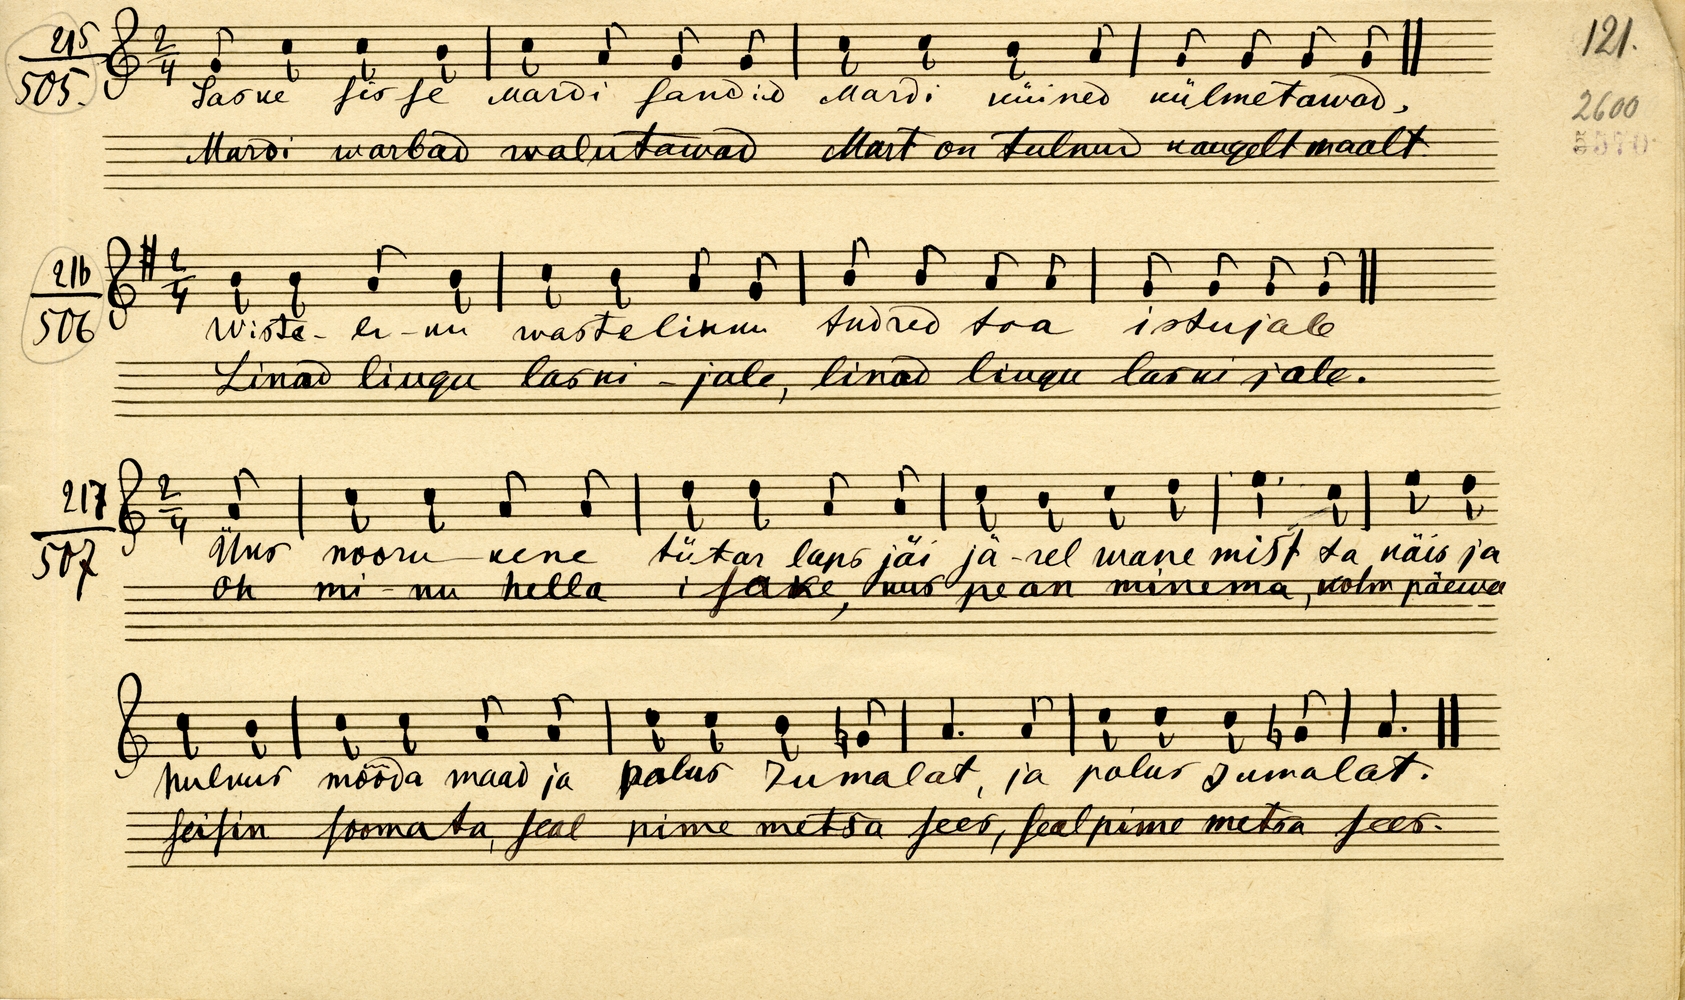 121.
215
505.
2/4
Laske sisse Mardi sandid Mardi küüned külmetawad,
2600
5570
Mardi warbad walutawad Mart on tulnud kaugelt maalt
216
506
2/4
Wiste-li-ku wastelikku tudred toa istujale
Linad liugu laski-jale, linad liugu laskijale.
217
507
2/4
Üks nooru-kene tütar laps jäi jä-rel wane mist ta käis ja
Oh mi-nu hella isake, kus pean minema, kolm päewa
hulkus mööda maad ja palus Jumalat, ja palus Jumalat.
seisin soomata, seal pime metsa sees, seal pime metsa sees.